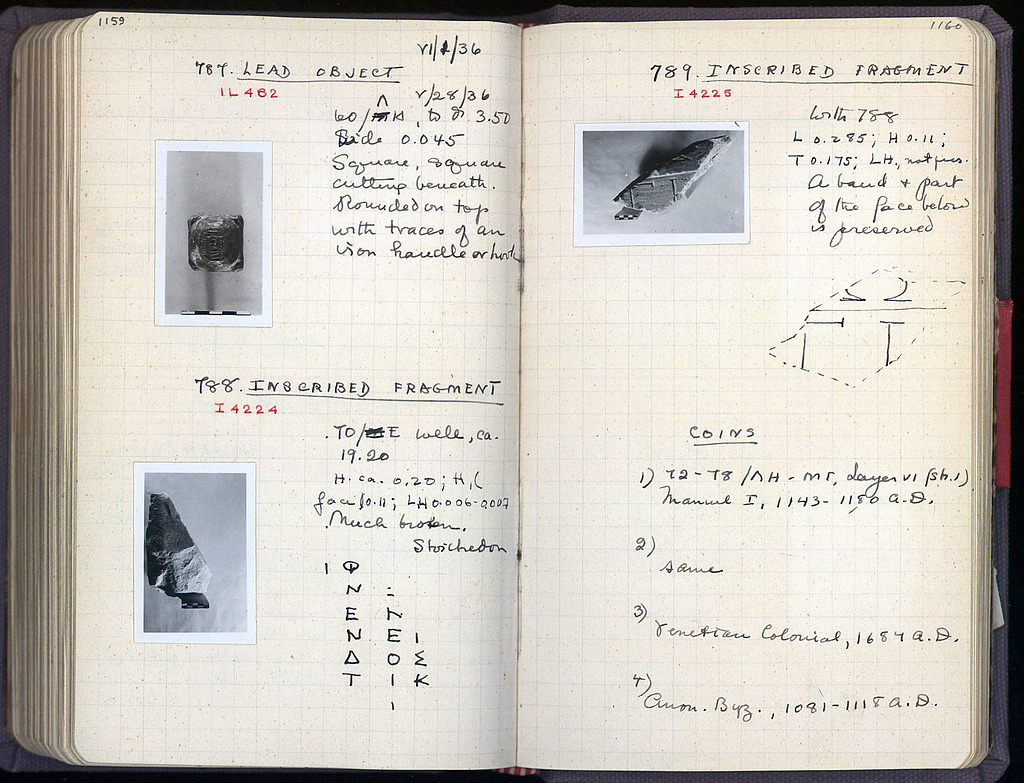 1159
VI/1/36
787. LEAD OBJECT
IL 462
V/28/36
60/Λ, to Dr 3.50
Side 0.045
Square, square
cutting beneath.
Rounded on top
with traces of an
iron handle or hook
788. INSCRIBED FRAGMENT
I 4224
TO/E well, ca.
19.20
H. ca. 0.20; H.(
face) 0.11; LH 0.006-0.007
Much broken.
Stoichedon
Ν :
Ε
Ν Ε Ι
Δ Ο Σ
Τ Ι Κ
Ι
1160
789. INSCRIBED FRAGMENT
I 4225
With 788
L 0.285; H 0.11;
T 0.175; LH., not pres.
A band & part
of the face below
is preserved
COINS
1) 72-78/ΛH-MΓ, Layer VI (Sh.1)
Manuel I, 1143-1180 A.D.
2)
same
3)
Venetian Colonial, 1684 A.D.
4)
Anon. Byz., 1081-1118 A.D.